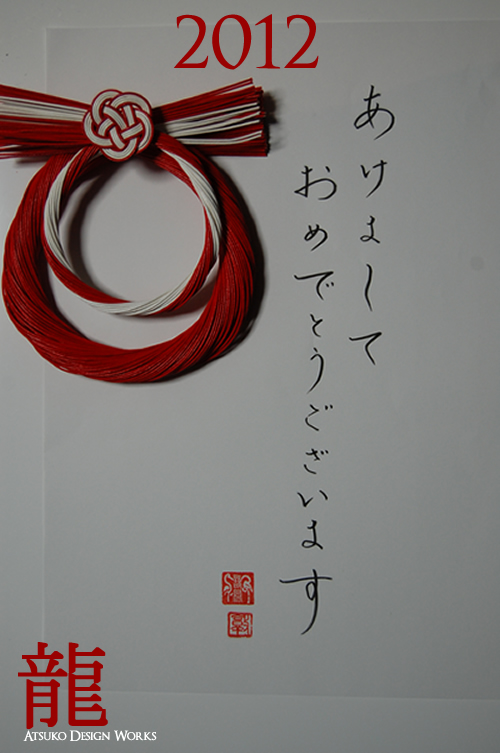 2012
あけまして
おめでとうございます
龍
Atsuko Design Works